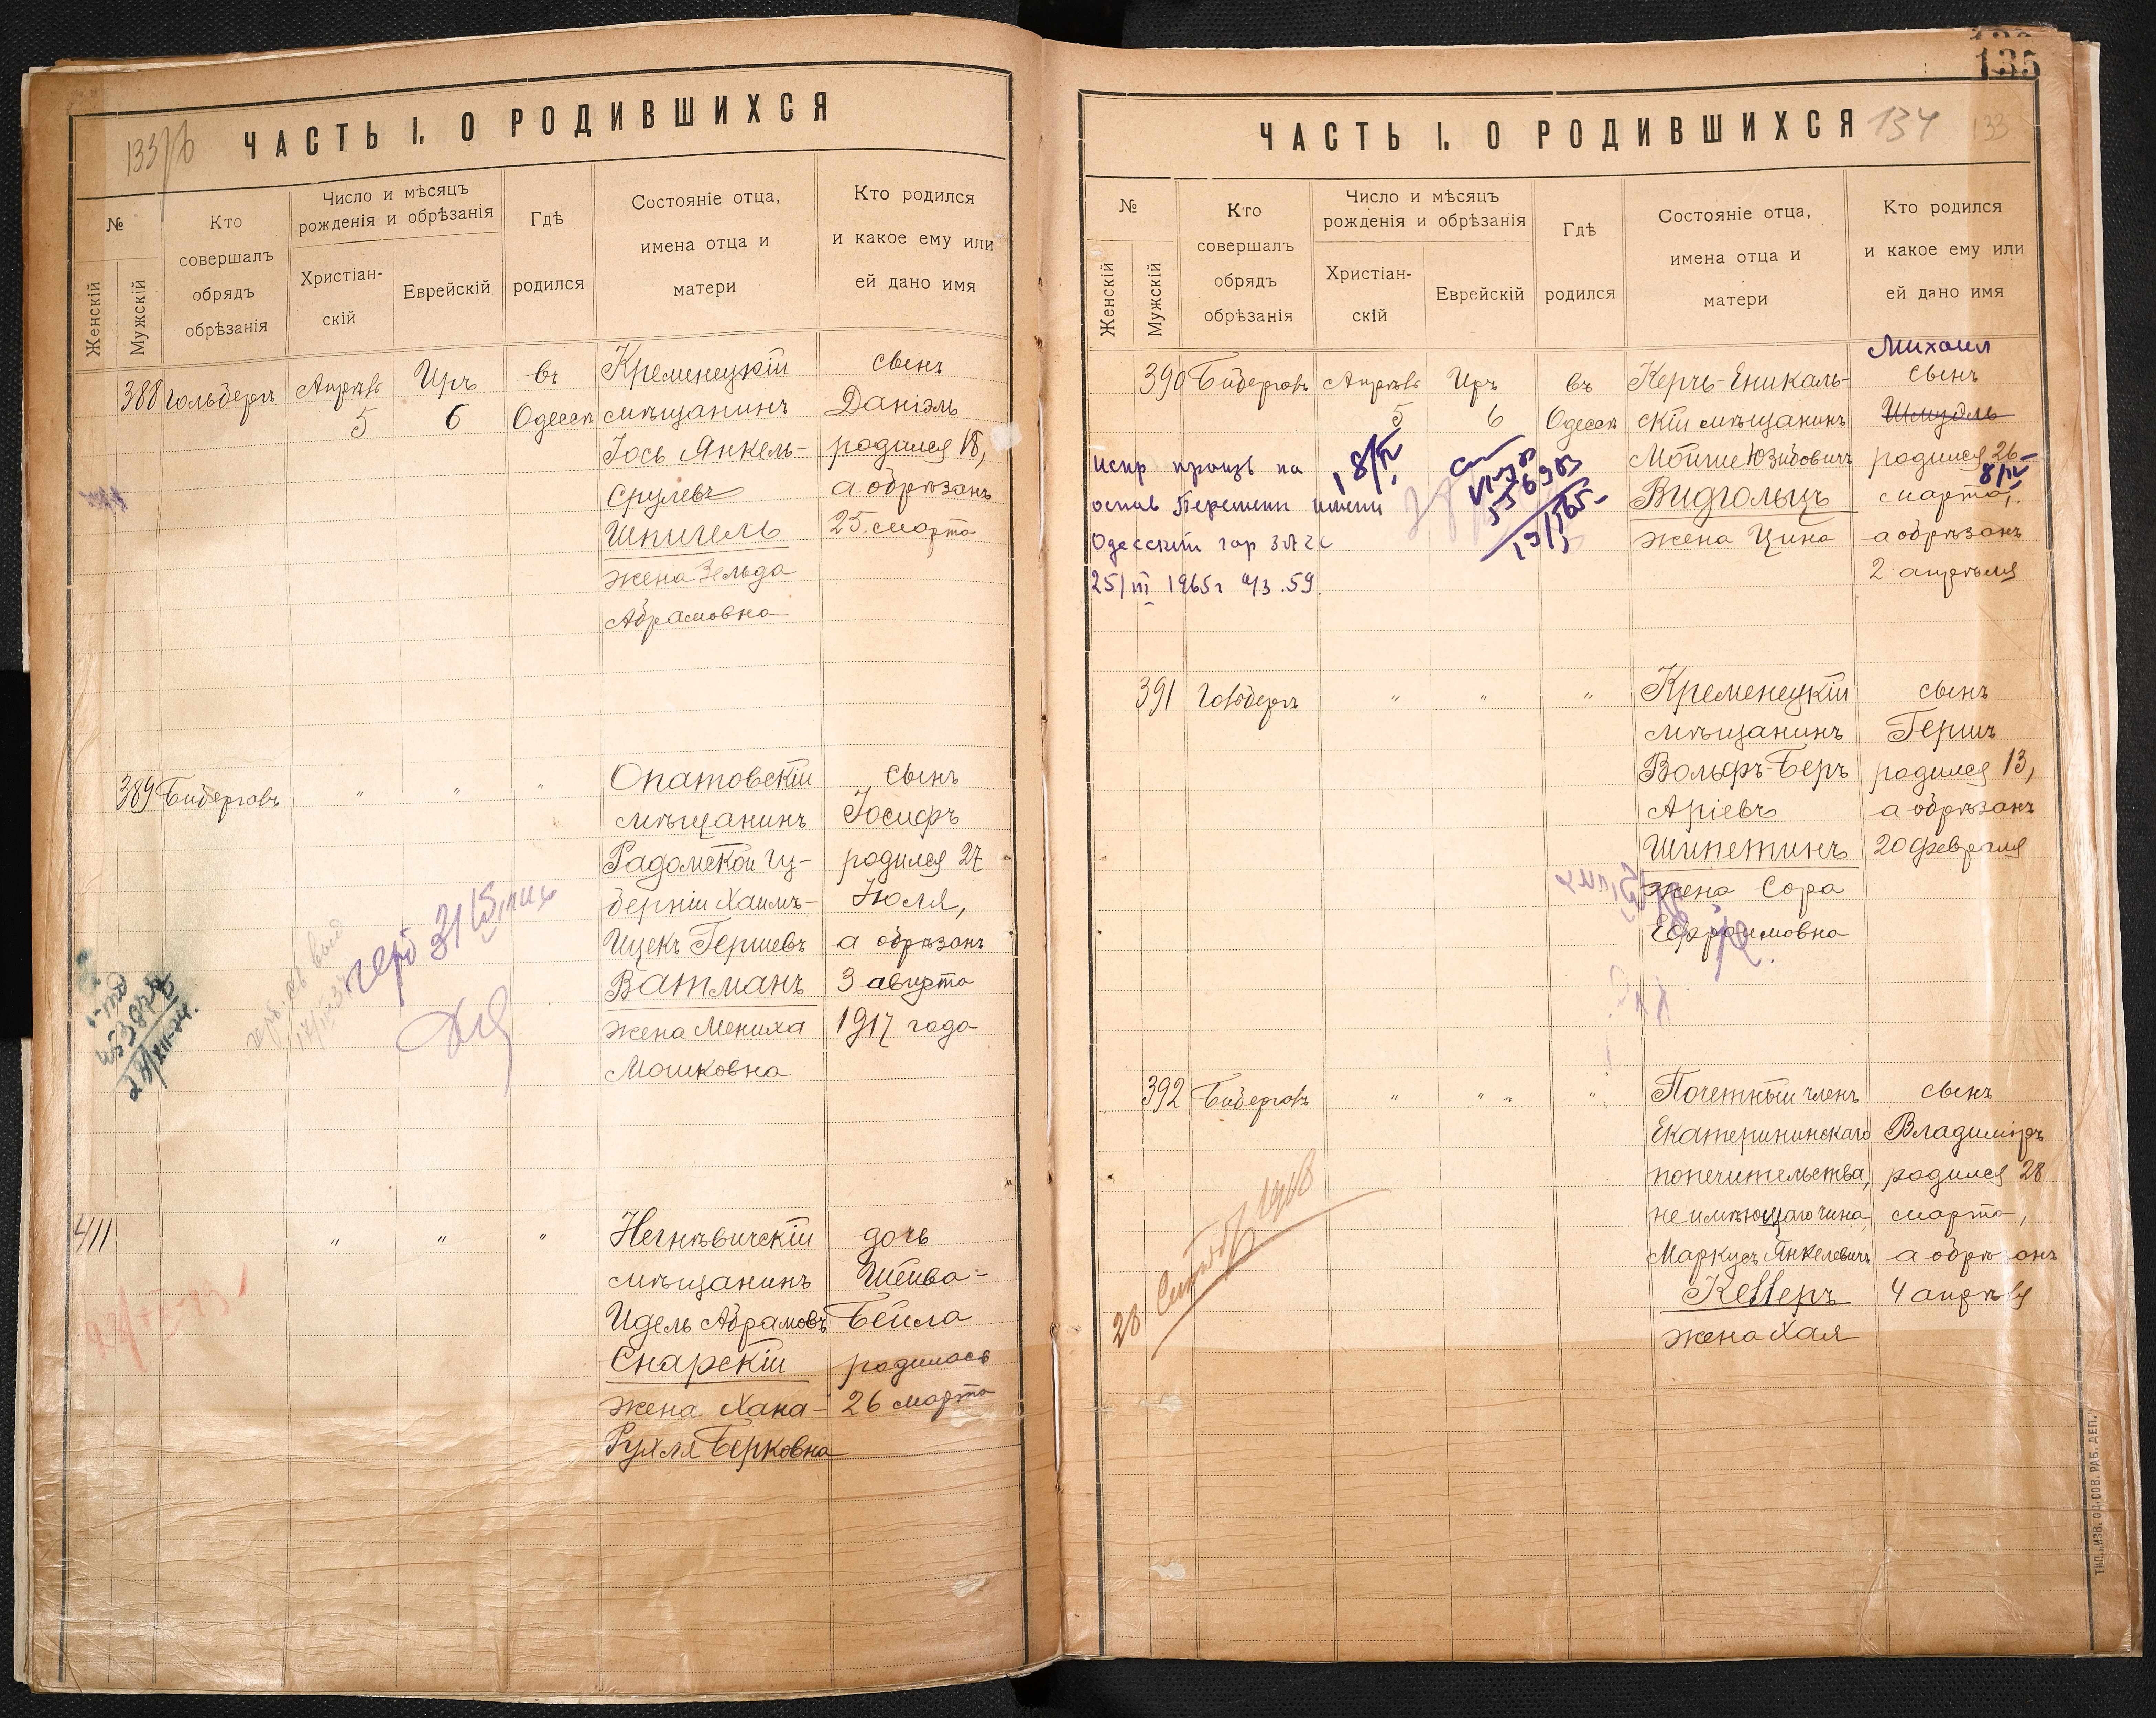 133/б
ЧАСТЬ I. О РОДИВШИХСЯ
№
Женскій
Мужскій
Кто
совершалъ
обрядъ
обрѣзанія
Число и мѣсяцъ
рожденія и обрѣзанія
Христіан-
скій
Еврейскій
Гдѣ
родился
Состояніе отца,
имена отца и
матери
Кто родился
и какое ему или
ей дано имя
388 Гольдберг Апрѣль 5 Иръ 6 въ Одессѣ
Кременецкій
мѣщанинъ
Іось Янкель-
Срулевъ
Шпигель
жена Зельда
Абрамовна
сынъ
Даніэль
родился 18,
а обрѣзанъ
25 марта
389 " " "
Опатовскій
мѣщанинъ
Радомской гу-
берніи Хаимъ-
Ицекъ Гершевъ
Ватманъ
жена Мениха
Мошковна
сынъ
Іосифъ
родился 27
Іюля,
а обрѣзанъ
3 августа
1917 года
411 " " "
Негнѣвичскій
мѣщанинъ
Идель Абрамовъ
Снарскій
жена Хана-
Рухля Берковна
дочь
Шейва-
Бейла
родилась
26 марта
135
ЧАСТЬ I. О РОДИВШИХСЯ
134
133
№
Женскій
Мужскій
Кто
совершалъ
обрядъ
обрѣзанія
Число и мѣсяцъ
рожденія и обрѣзанія
Христіан-
скій
Еврейскій
Гдѣ
родился
Состояніе отца,
имена отца и
матери
Кто родился
и какое ему или
ей дано имя
390 Апрѣль 5 Иръ 6 въ Одессѣ
Керчь-Еникаль-
скій мѣщанинъ
Мойше Юзибовичъ
Видгольцъ
жена Цина
Михаил
сынъ
Шмудль
родился 26
8/IV
марта,
а обрѣзанъ
2 апрѣля
испр произв на
основ Перемени имени
Одесский гор ЗАГС
25/III 1965г а/з .59.
18/IV
391 Гольдберг " " "
Кременецкій
мѣщанинъ
Вольфъ-Беръ
Аріевъ
Шипетинъ
жена Сора
Ефраимовна
сынъ
Гершъ
родился 13,
а обрѣзанъ
20 февраля
392 " " "
Почетный членъ
Екатерининскаго
попечительства,
не имѣющаго чина
Маркусъ Янкелевичъ
Келлеръ
жена Хая
сынъ
Владиміръ
родился 28
марта,
а обрѣзанъ
4 апрѣля
28 1918
ТИП. ИЗВ. ОД. СОВ. РАБ. ДЕП.